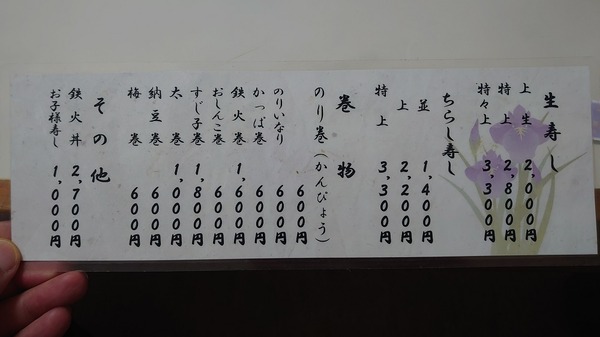 生寿し
上生 2,000円
特上 2,800円
特々上 3,300円
ちらし寿し
並 1,400円
上 2,200円
特上 3,300円
巻物
のり巻(かんぴょう)
600円
のりいなり 600円
かっぱ巻 600円
鉄火巻 1,600円
おしんこ巻 600円
すじ子巻 1,800円
太巻 1,000円
納豆巻 600円
梅巻 600円
その他
鉄火丼 2,700円
お子様寿し 1,000円